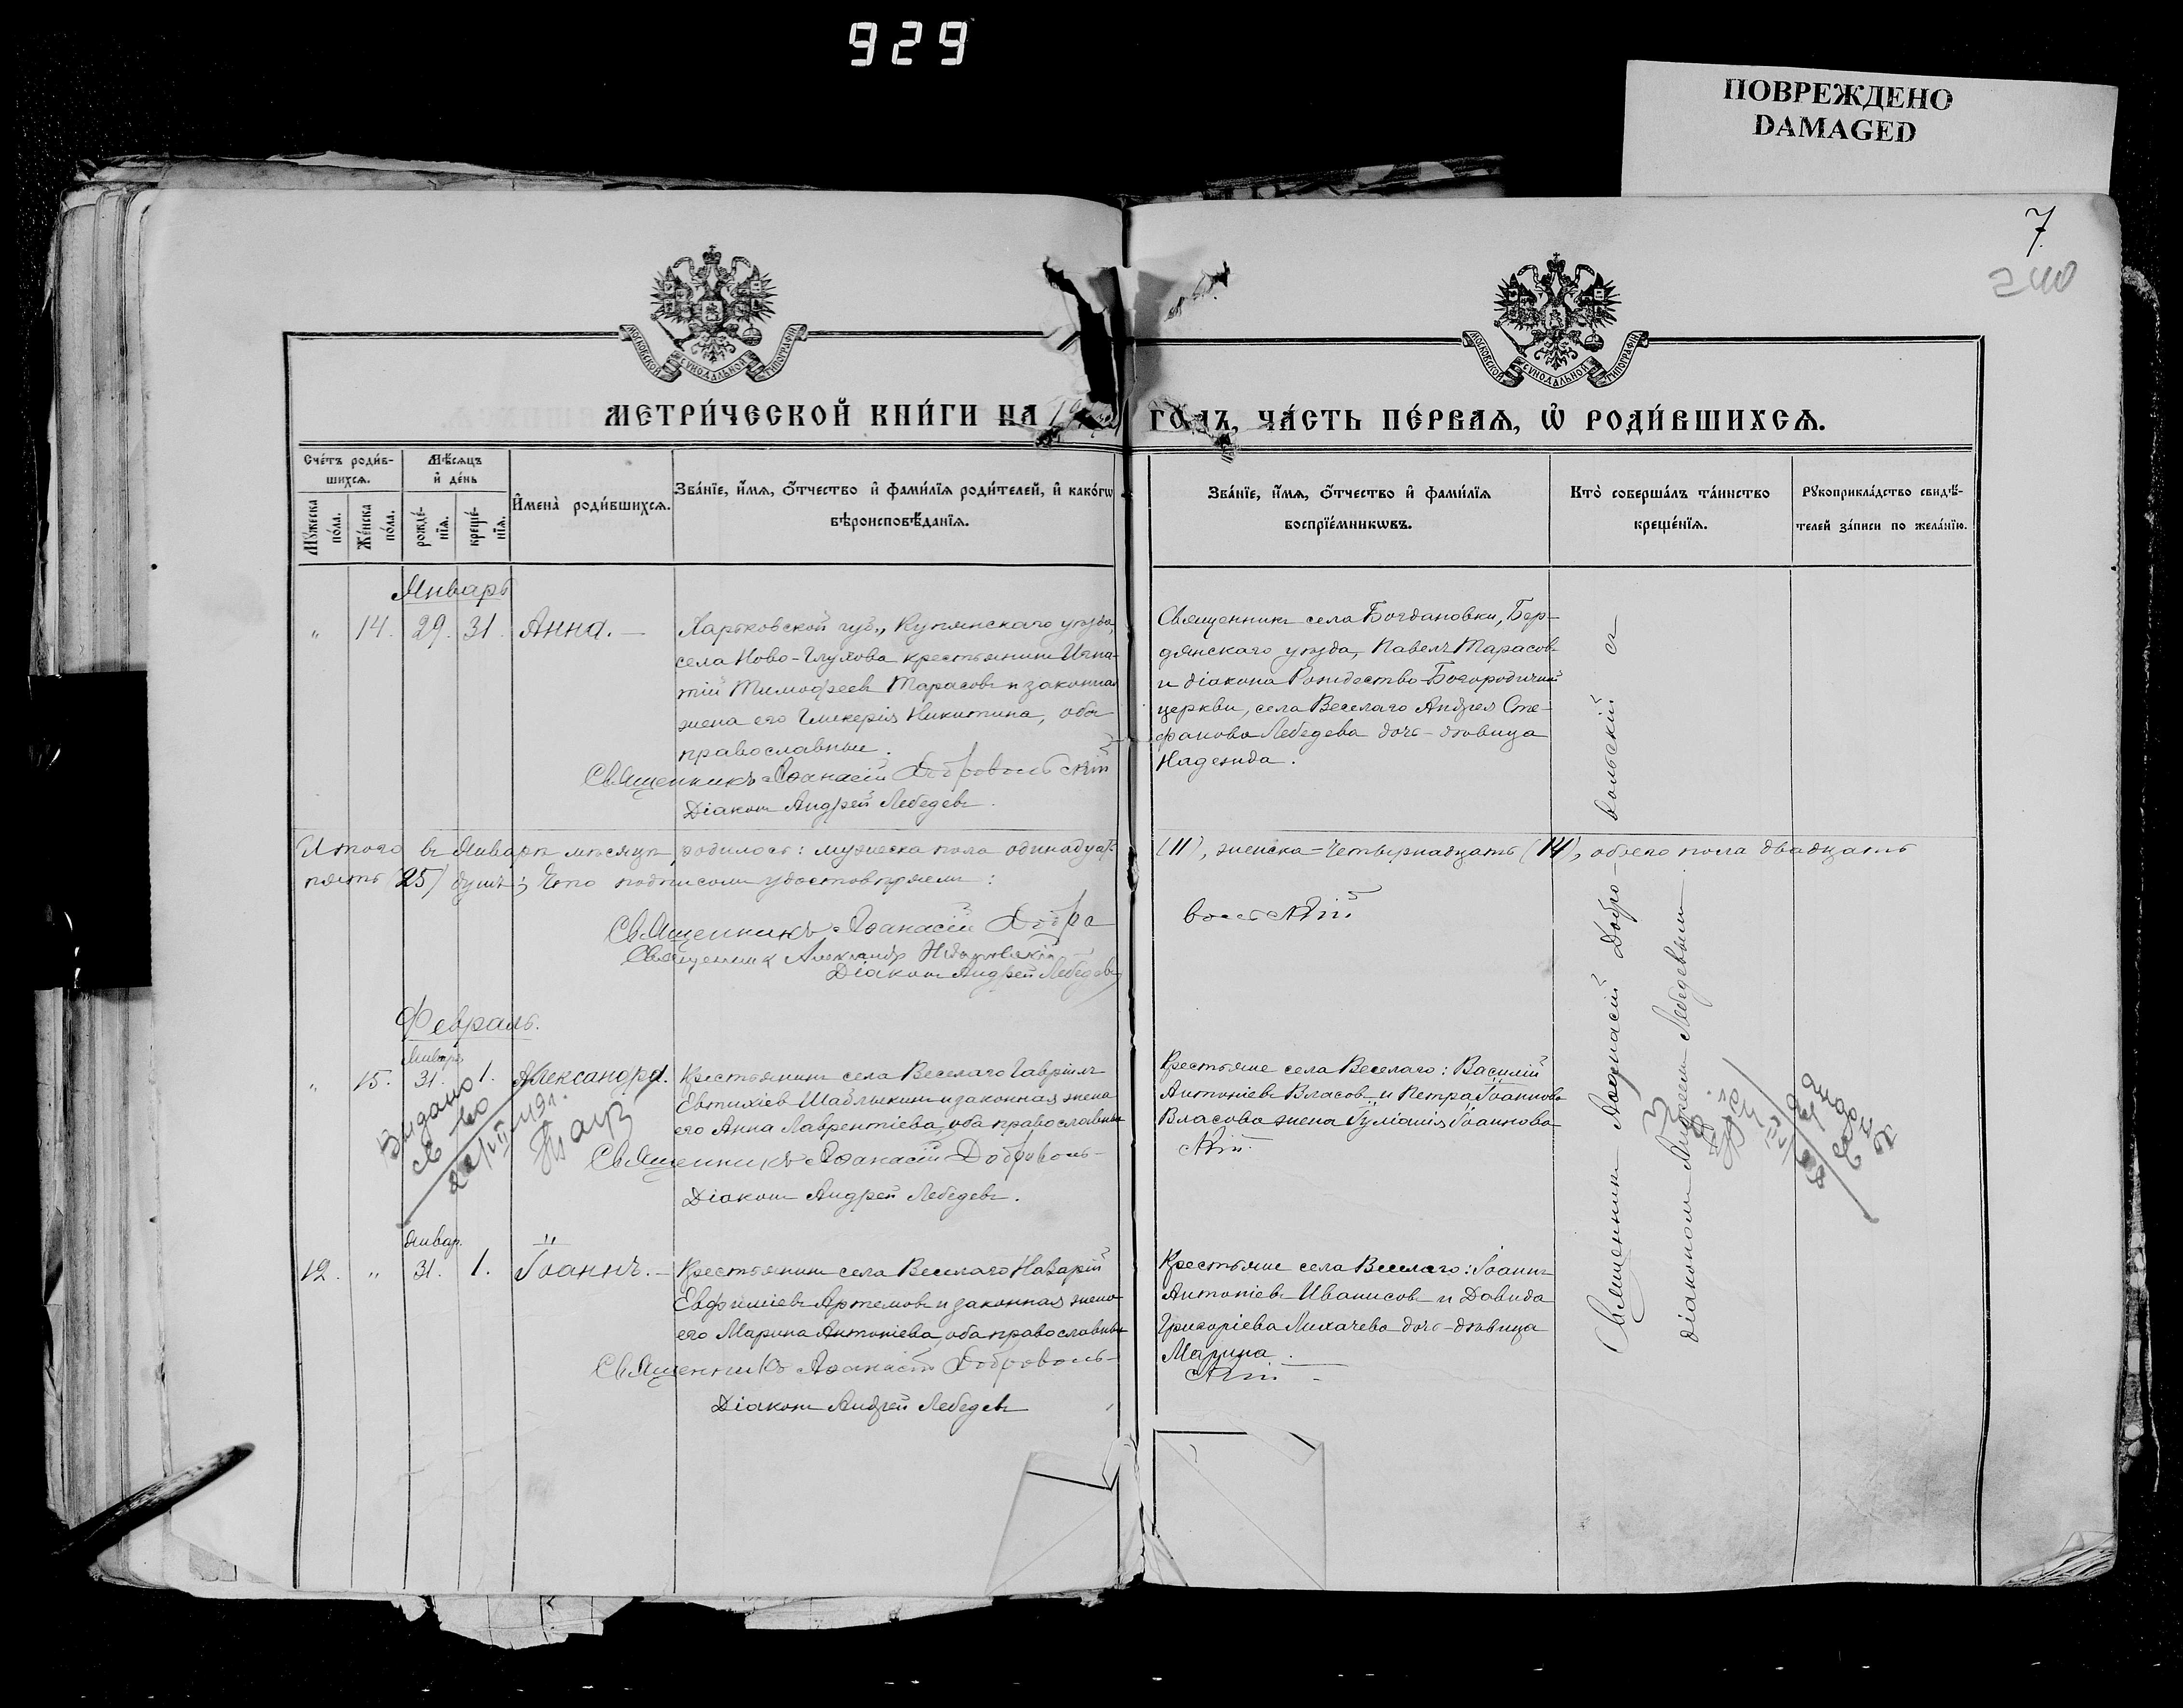 929
ПОВРЕЖДЕНО
DAMAGED
7
240
МОСКОВСКОЙ СУНОДАЛЬНОЙ ТИПОГРАФІИ
МОСКОВСКОЙ СУНОДАЛЬНОЙ ТИПОГРАФІИ
МЕТРИ́ЧЕСКОЙ КНИ́ГИ НА 19
ГО́ДЪ, ЧА́СТЬ ПЕ́РВАѦ, Ѡ҆ РОДИ́ВШИХСѦ.
Сче́тъ роди́в-
шихсѧ.
Мꙋ́жеска по́ла.
Же́нска по́ла.
Мѣ́сѧцъ
и҆ де́нь
рожде́-
нїѧ.
креще́-
нїѧ.
И҆мена̀ роди́вшихсѧ.
Зва́нїе, и҆́мѧ, ѻ҆́тчество и҆ фами́лїѧ роди́телей, и҆ како́гѡ
вѣроисповѣ́данїѧ.
Зва́нїе, и҆́мѧ, ѻ҆́тчество и҆ фами́лїѧ
воспрїе́мникѡвъ.
Кто̀ соверша́лъ та́инство
креще́нїѧ.
Рꙋкоприкла́дство свидѣ́-
телей за́писи по жела́нїю.
Январь
„ 14. 29. 31. Анна. —
Харьковской губ., Купянскаго уѣзда,
села Ново-Глухова крестьянинъ Игна-
тій Тимофеевъ Тарасовъ и законная
жена его Гликерія Никитина, оба
православные.
Священникъ Аѳанасій Добровольскій
Діаконъ Андрей Лебедевъ.
Священникъ села Богдановки, Бер-
дянскаго уѣзда, Павелъ Тарасовъ
и діакона Рождество-Богородичной
церкви, села Веселаго Андрея Сте-
фанова Лебедева дочь-дѣвица
Надежда.
Итого въ Январѣ мѣсяцѣ родилось: мужеска пола одинадцать
(11), женска = четырнадцать (14), обоего пола двадцать
пять (25) душъ; Что подписомъ удостовѣряемъ:
Священникъ Аѳанасій Добро
вольскій
Священникъ Александръ
Діаконъ Андрей Лебедевъ
Февраль.
Январь
„ 15. 31. 1. Александра.
Крестьянинъ села Веселаго Гавріилъ
Евтихіевъ Шаблыкинъ и законная жена
его Анна Лаврентіева, оба православные
Священникъ Аѳанасій Доброволь-
скій.
Діаконъ Андрей Лебедевъ.
Крестьяне села Веселаго: Василій
Антоніевъ Власовъ и Петра Іоаннова
Власова жена Іуліанія Іоаннова
Выдано
св-во
Январ.
12. „ 31. 1. Іоаннъ. —
Крестьянинъ села Веселаго Назарій
Евфиміевъ Артемовъ и законная жена
его Марина Антоніева, оба православные
Священникъ Аѳанасій Доброволь-
скій
Діаконъ Андрей Лебедевъ
Крестьяне села Веселаго: Іоаннъ
Антоніевъ Иванисовъ и Давида
Григоріева Лихачева дочь-дѣвица
Марина.
Священникъ Аѳанасій Добро-вольскій съ
діакономъ Андреемъ Лебедевымъ.